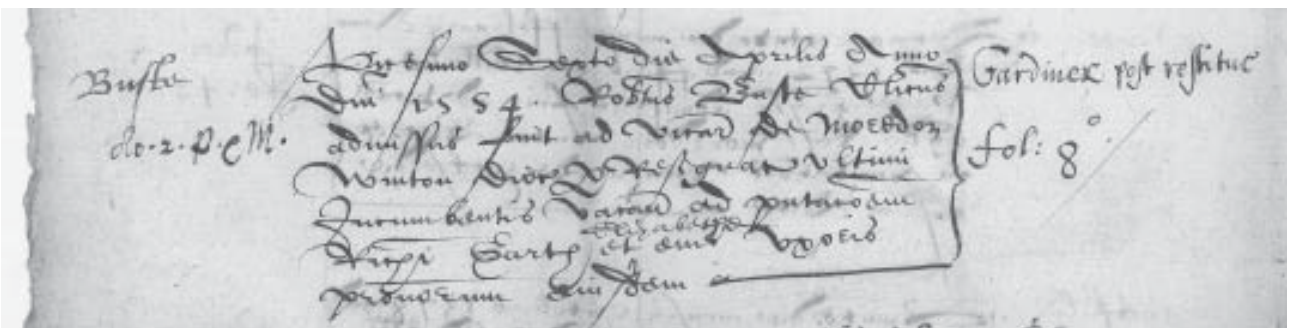 Buste
do. 2. P. e M.
Vicesimo Sexto die Aprilis Anno
Dni 1554. Robtus Baste Clicus
admissus fuit ad vicar de Moredon
Winton dioc p Resignac ultimi
Incumbentis vacan ad pntacoem
Elizabethe
Rici Garth et eius Uxoris
pronorum eiusdem
Gardiner post restituc
fol: 8°.